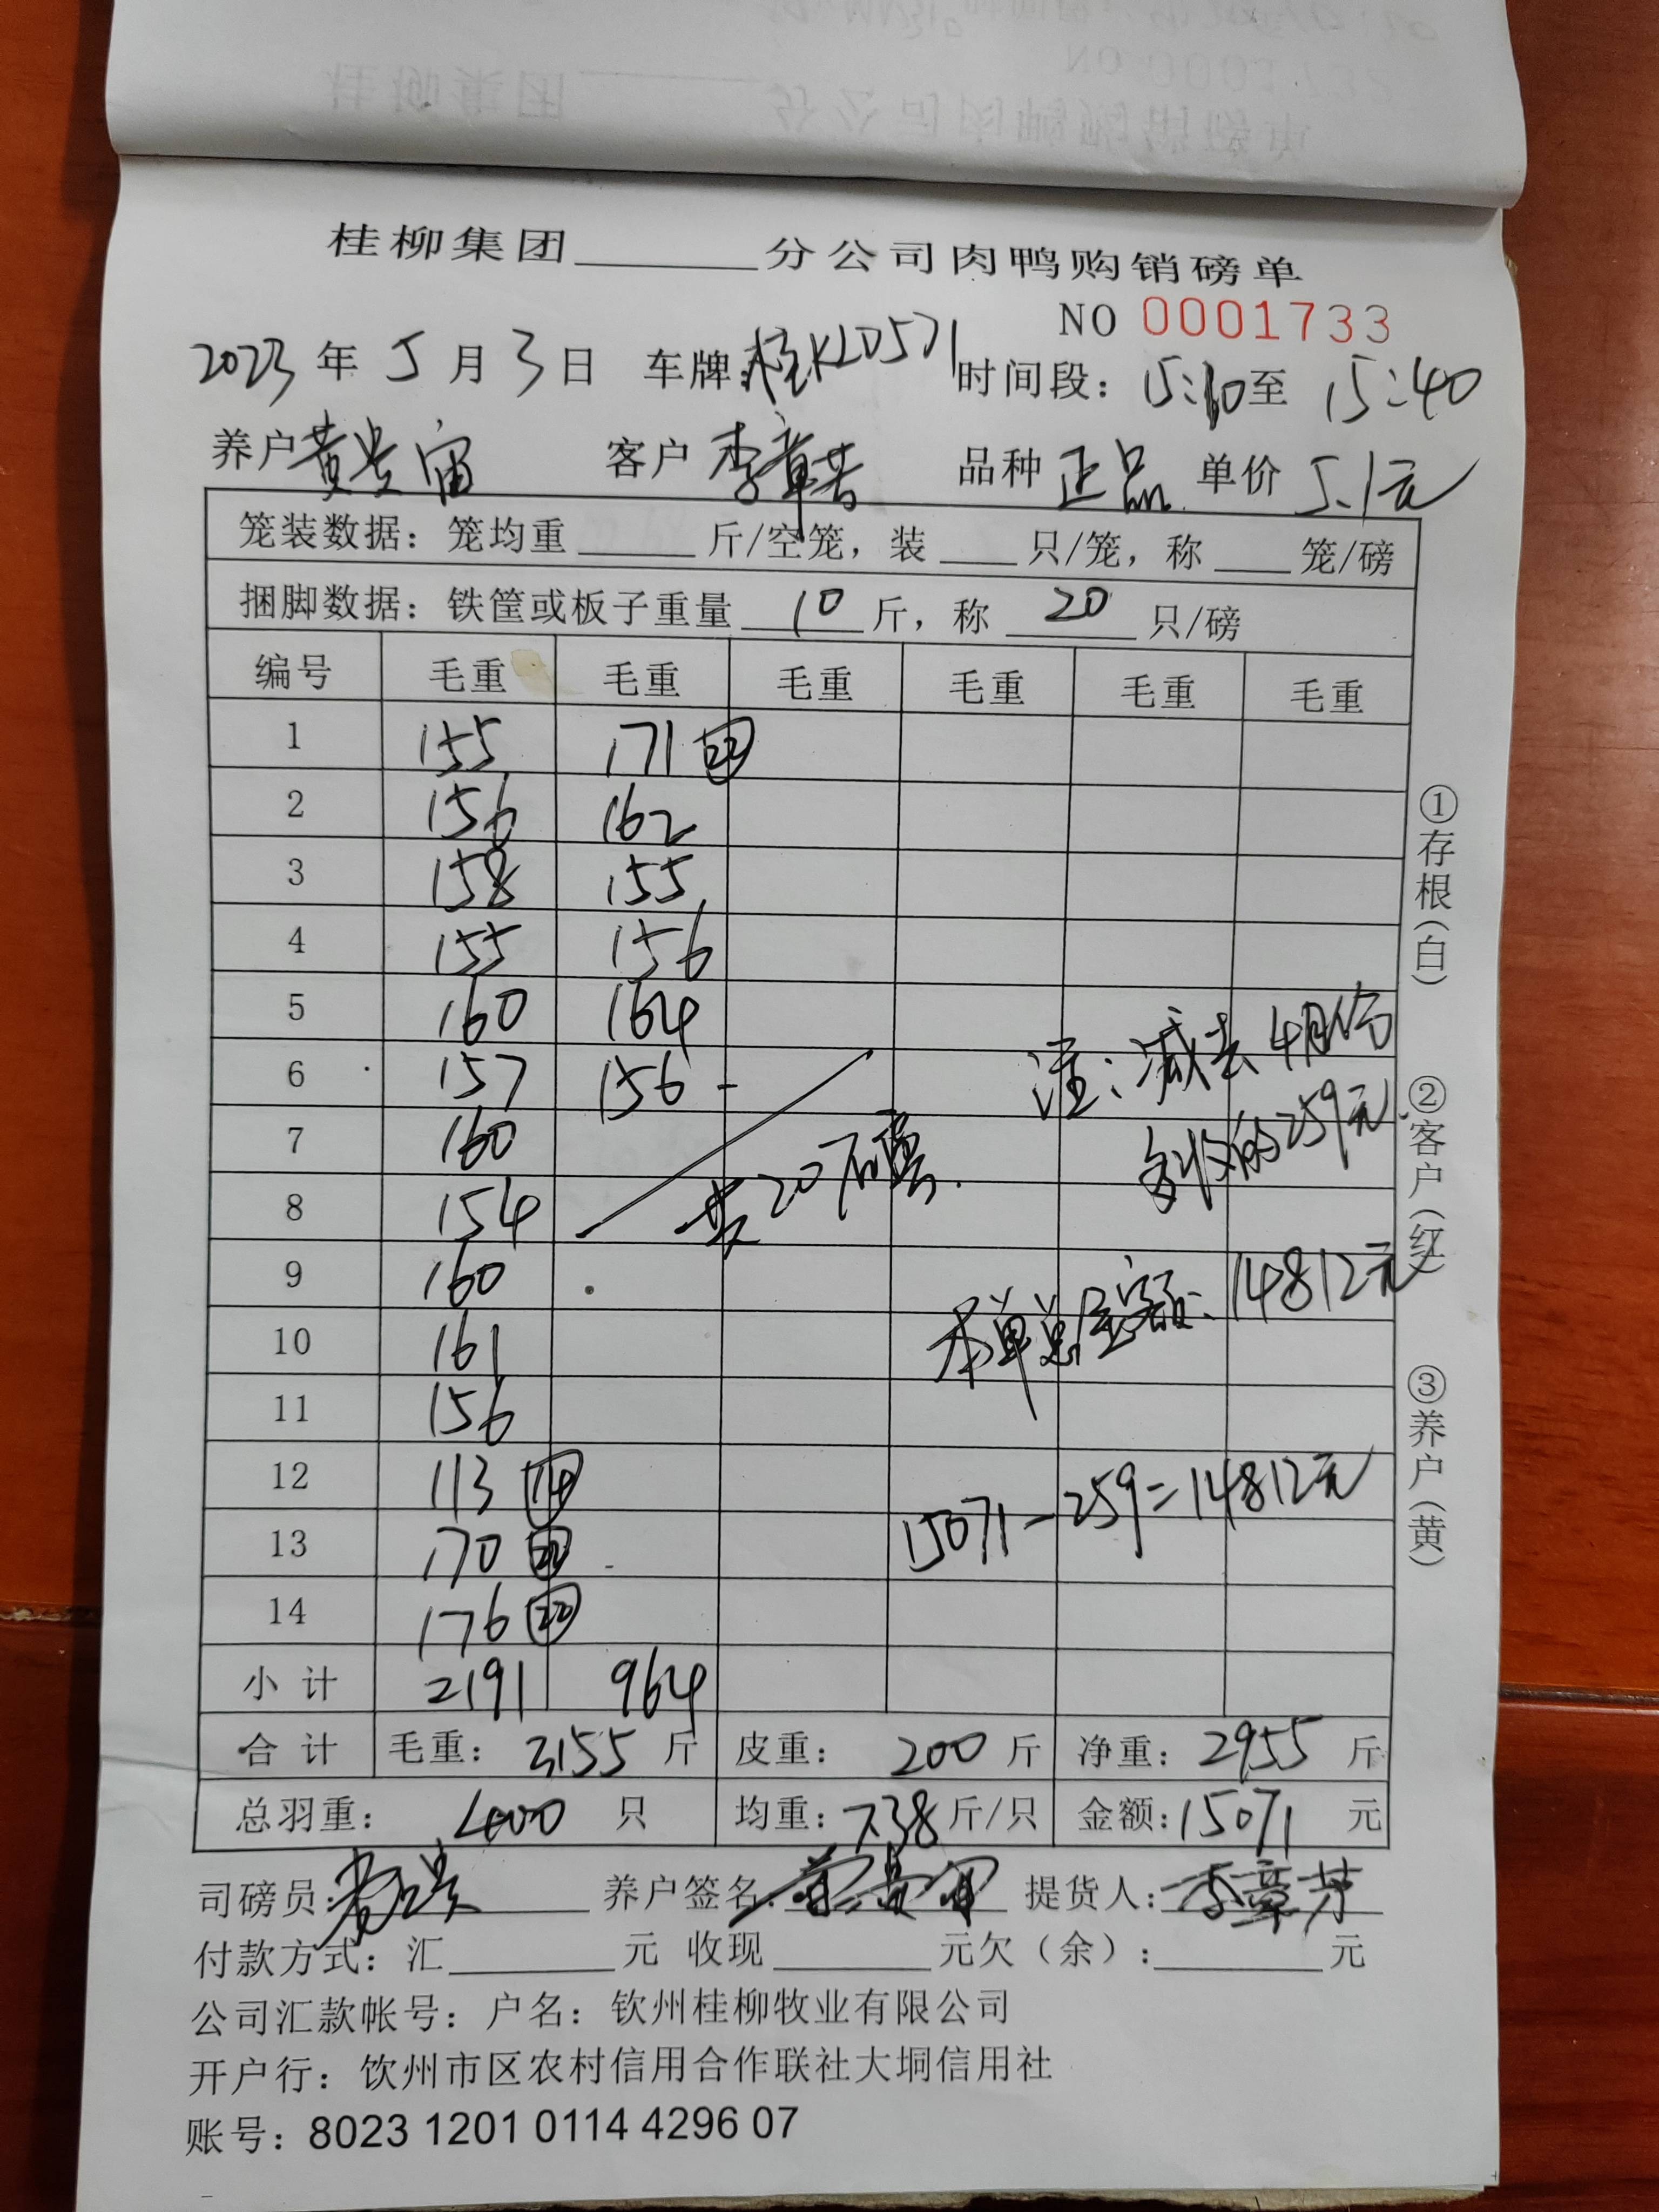 桂柳集团______分公司肉鸭购销磅单
NO 0001733
2023年5月3日 车牌:桂KLD571 时间段：15:10至15:40
养户黄贵宙 客户 李章芳 品种 正品 单价 5.1元
笼装数据：笼均重____斤/空笼，装___只/笼，称___笼/磅
捆脚数据：铁筐或板子重量 10 斤，称 20 只/磅
编号 毛重 毛重 毛重 毛重 毛重 毛重
1 155 171 ㉒
2 156 162
3 158 155
4 155 156
5 160 164
6 157 156 -
7 160
8 154
9 160
10 161
11 156
12 113 ⑭
13 170 ㉒
14 176 ㉒
共20磅.
注：减去4月份
多收的259元.
本单总金额：14812元
15071-259=14812元
小计 2191 964
合计 毛重：3155斤 皮重：200斤 净重：2955斤
总羽重：400只 均重：7.38斤/只 金额:15071元
司磅员: 养户签名: 黄贵宙 提货人:李章芳
付款方式：汇______元 收现______元欠（余）:______元
公司汇款帐号：户名：钦州桂柳牧业有限公司
开户行：饮州市区农村信用合作联社大垌信用社
账号：8023 1201 0114 4296 07
①存根（白）
②客户（红）
③养户（黄）